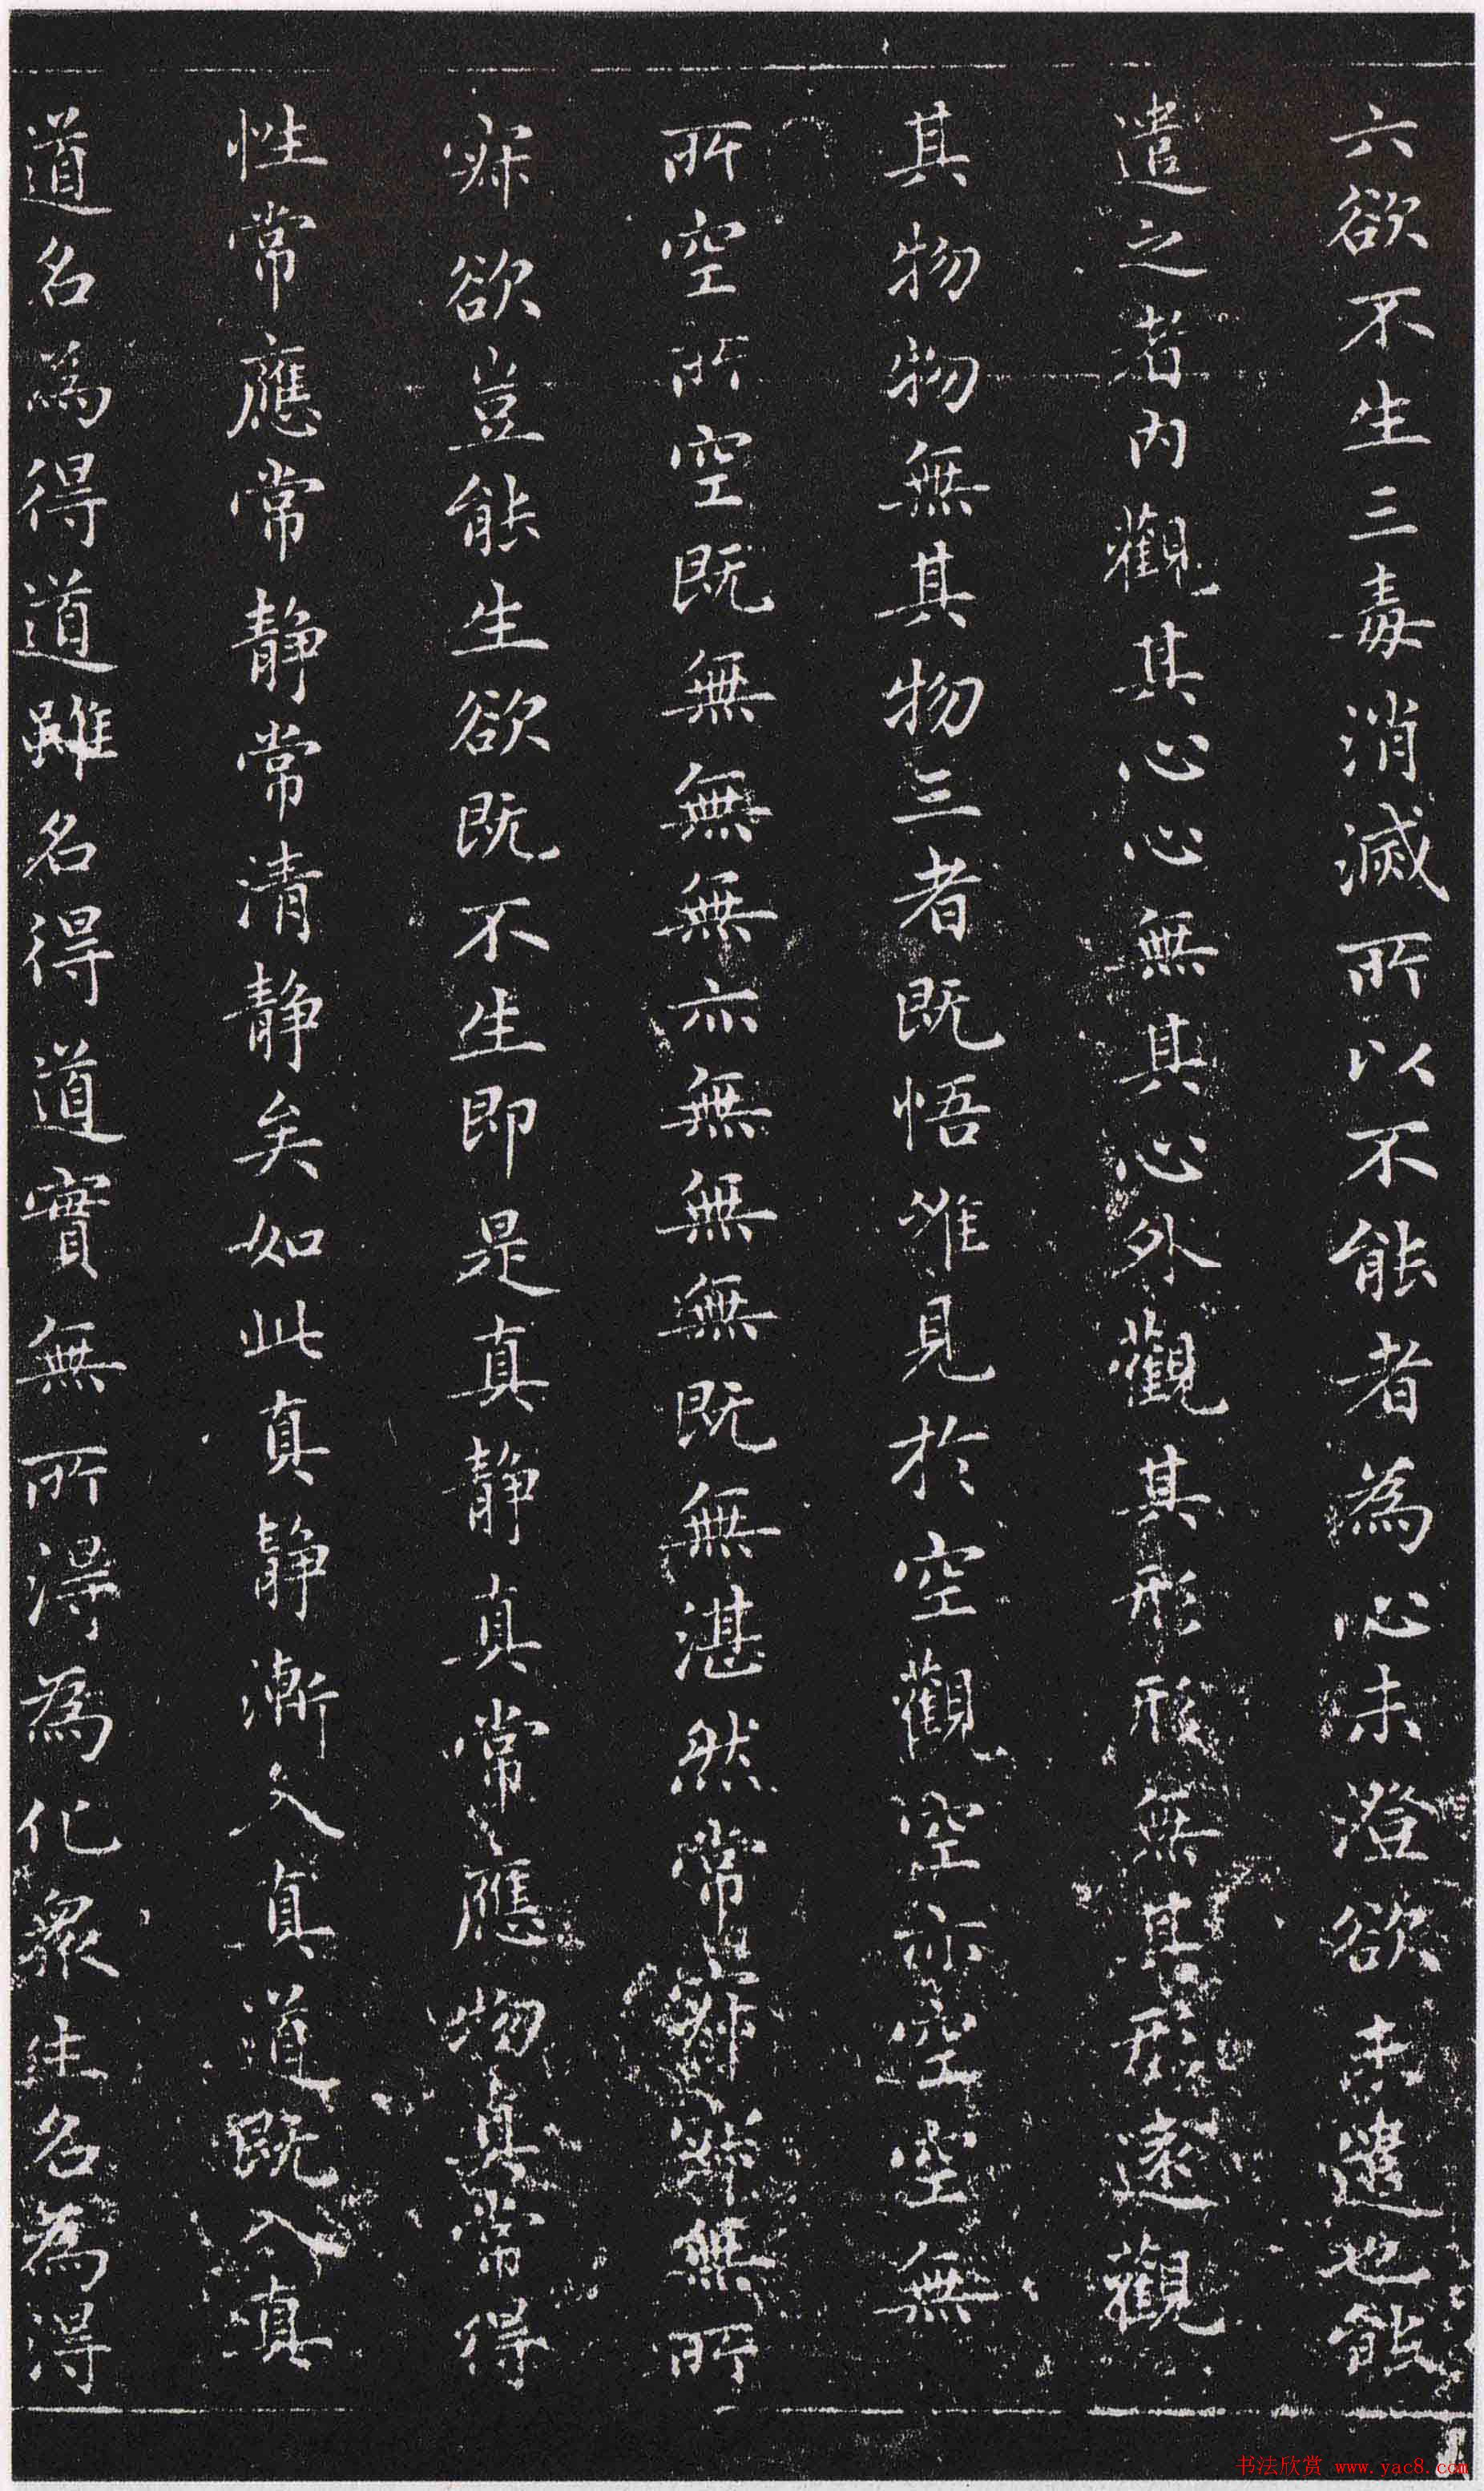 六欲不生三毒消滅所以不能者為心未澄欲未遣也能
遣之者內觀其心心無其心外觀其形形無其形遠觀
其物物無其物三者既悟唯見於空觀空亦空空無
所空所空既無無無亦無無無既無湛然常寂寂無所
寂欲豈能生欲既不生即是真静真常應物真常得
性常應常静常清静矣如此真静漸入真道既入真
道名為得道雖名得道實無所得為化眾生名為得
书法欣赏 www.yac8.com